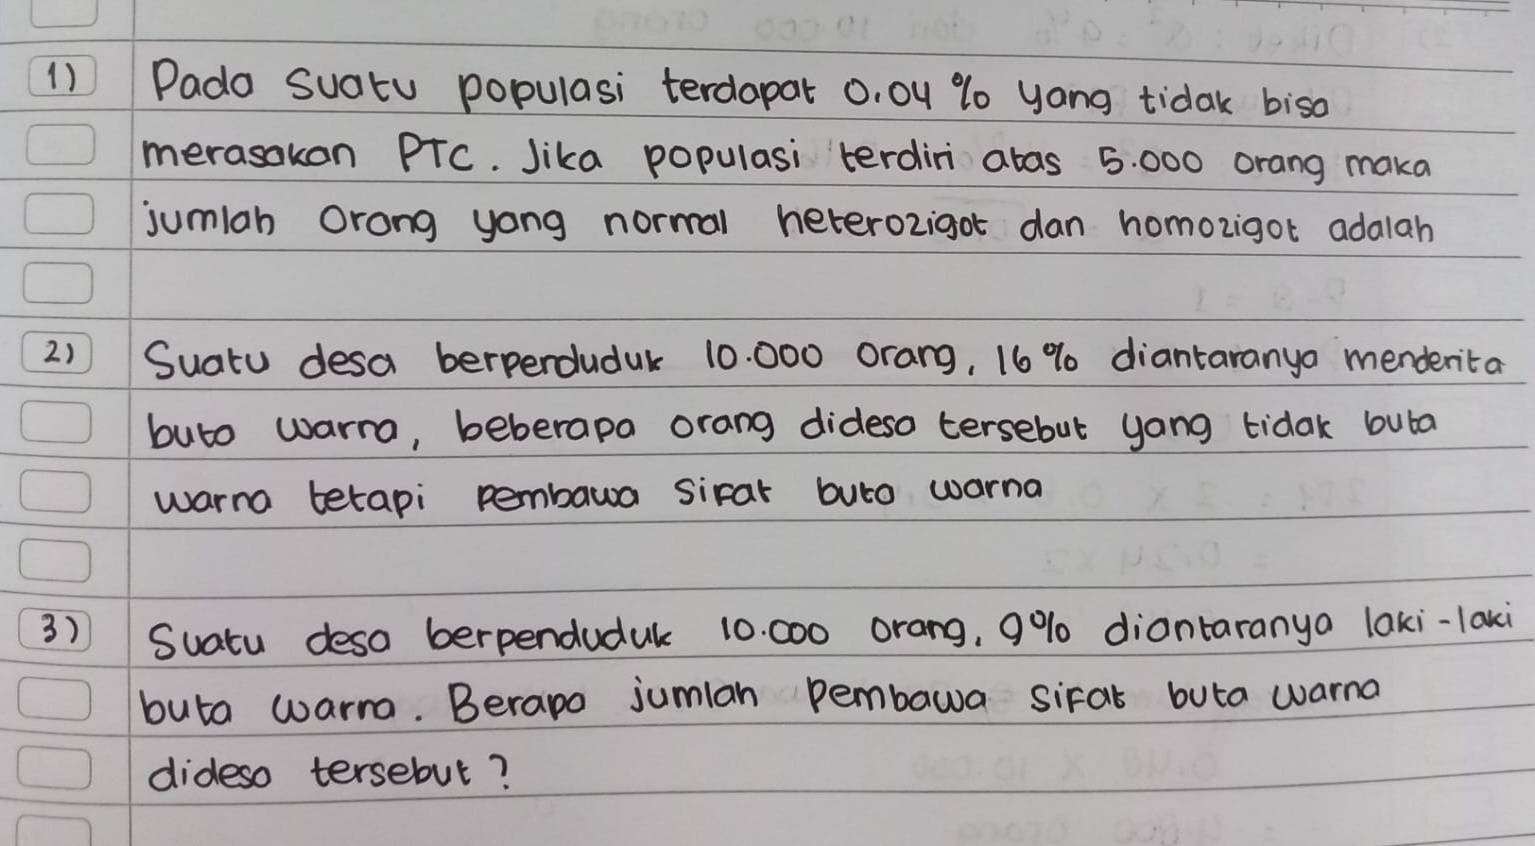 1) Pada suatu populasi terdapat 0.04 % yang tidak bisa
merasakan PTC. Jika populasi terdiri atas 5.000 orang maka
jumlah orang yang normal heterozigot dan homozigot adalah
2) Suatu desa berpenduduk 10.000 orang, 16 % diantaranya menderita
buta warna, beberapa orang didesa tersebut yang tidak buta
warna tetapi pembawa sifat buta warna
3) Suatu desa berpenduduk 10.000 orang, 9% diantaranya laki-laki
buta warna. Berapa jumlah pembawa sifat buta warna
didesa tersebut?